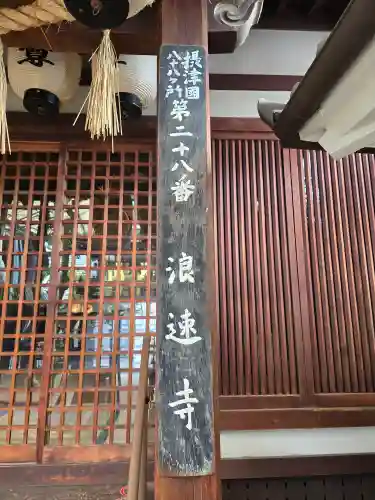 摂津國
八十八ヶ所
第二十八番 浪速寺